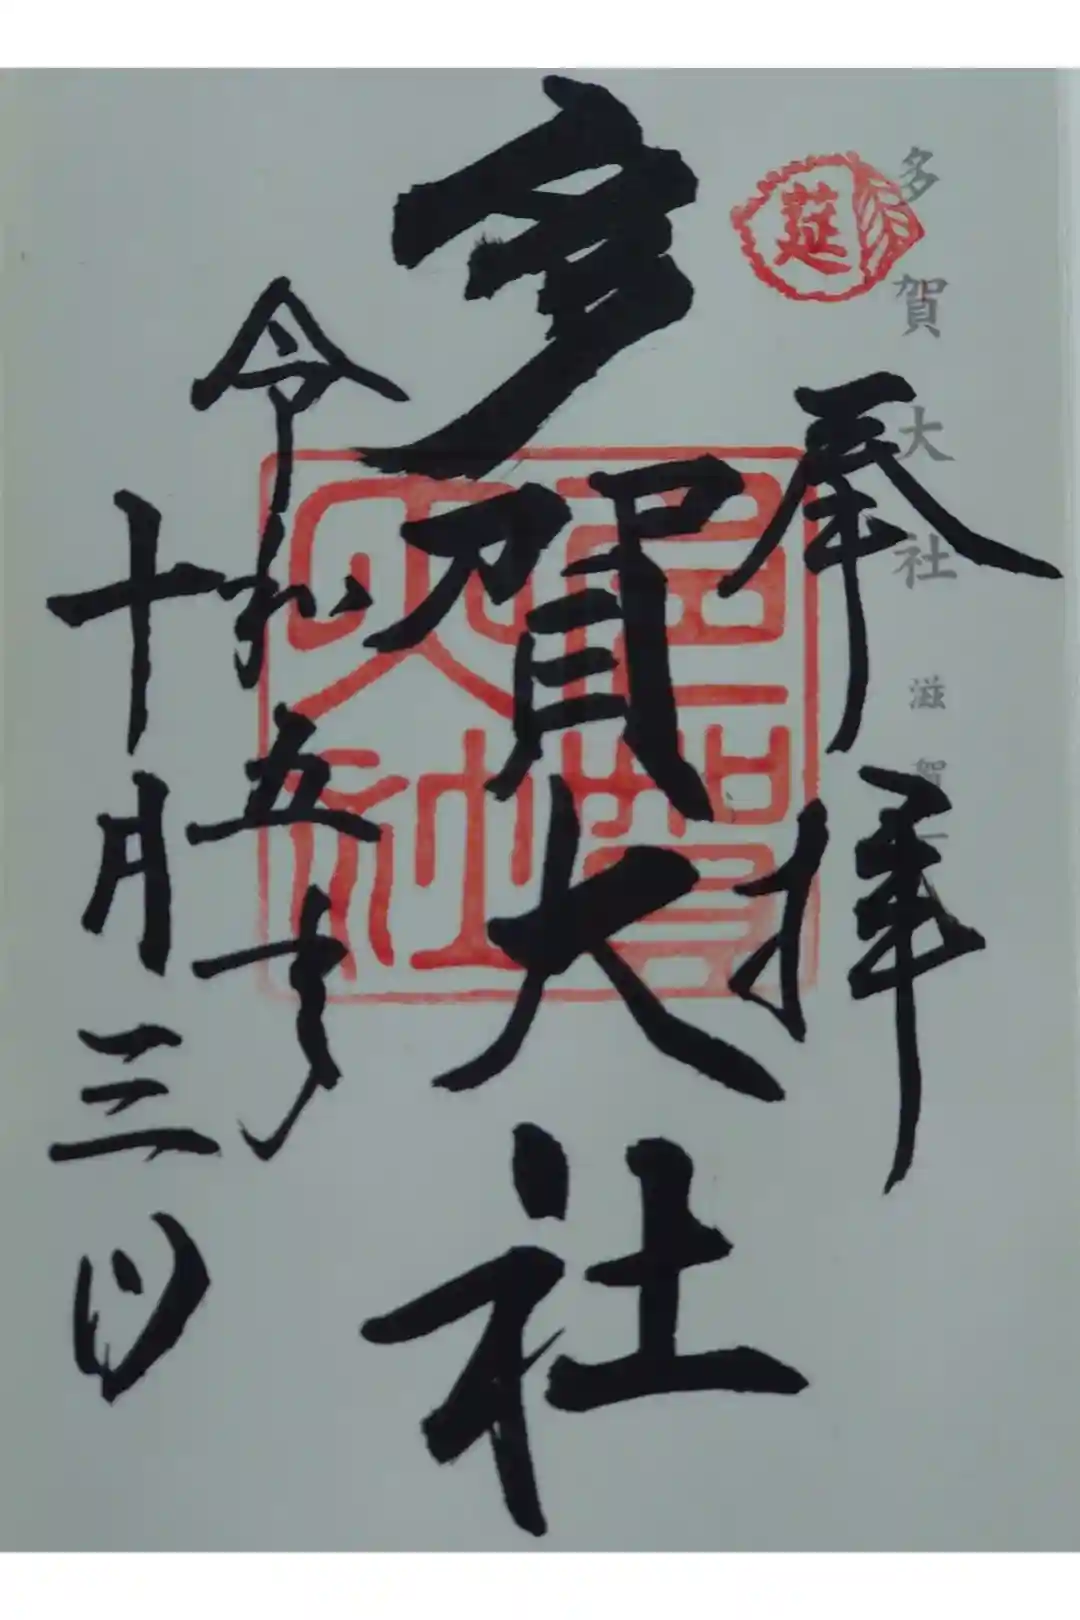 多賀大社 滋賀
莚
奉拝
多賀大社
大社
令和五年
十月三日